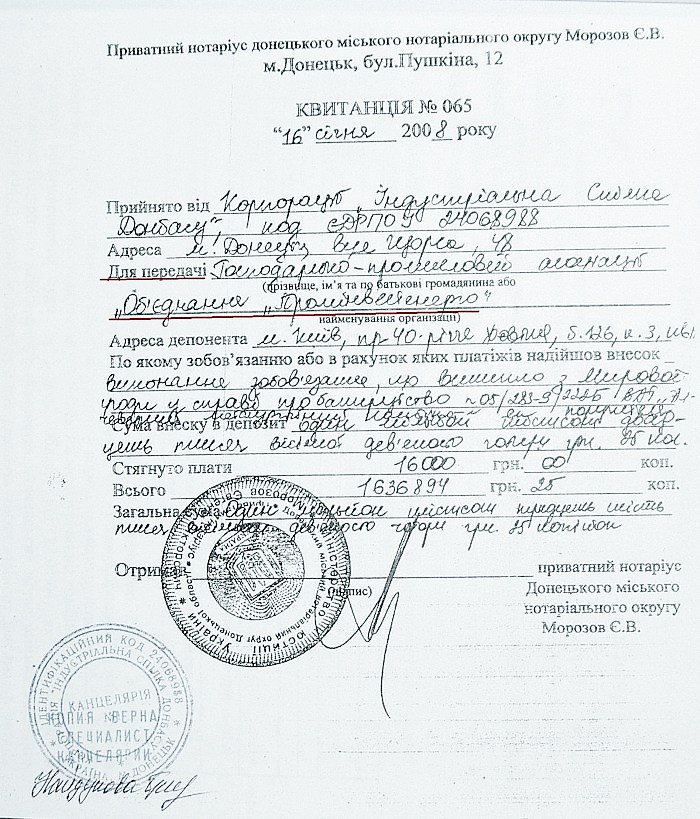 Приватний нотаріус донецького міського нотаріального округу Морозов Є.В.
м.Донецьк, бул.Пушкіна, 12
КВИТАНЦІЯ № 065
“16” січня 2008 року
Прийнято від Корпорації „Індустріальна Спілка
Донбасу", код ЄДРПОУ 24068988
Адреса м. Донецьк, вул Щорса, 48
Для передачі Господарсько-промисловій асоціації
(прізвище, ім’я та по батькові громадянина або
„Об'єднання „Промінвестенерго"
найменування організації)
Адреса депонента м. Київ, пр 40-річчя Жовтня, б. 126, к. 3,
По якому зобов’язанню або в рахунок яких платежів надійшов внесок
виконання зобов'язання, що виникло з Мирової
угоди у справі про банкрутство
Сума внеску в депозит один мільйон шістсот
тисяч вісімсот дев'яносто грн. 25 коп.
Стягнуто плати 16000 грн. 00 коп.
Всього 1636894 грн. 25 коп.
Загальна сума Один мільйон шістсот тридцять шість
тисяч вісімсот дев'яносто чотири грн. 25 копійок
Отримав
(підпис)
приватний нотаріус
Донецького міського
нотаріального округу
Морозов Є.В.
ІДЕНТИФІКАЦІЙНИЙ КОД 24068988
ІНДУСТРІАЛЬНА СПІЛКА ДОНБАСУ
УКРАЇНА м.ДОНЕЦЬК
КАНЦЕЛЯРІЯ
КОПИЯ ВЕРНА
СПЕЦИАЛИСТ
КАНЦЕЛЯРИИ